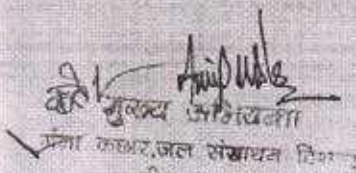 कृते मुख्य अभियन्ता
गंगा कछार, जल संसाधन विभाग